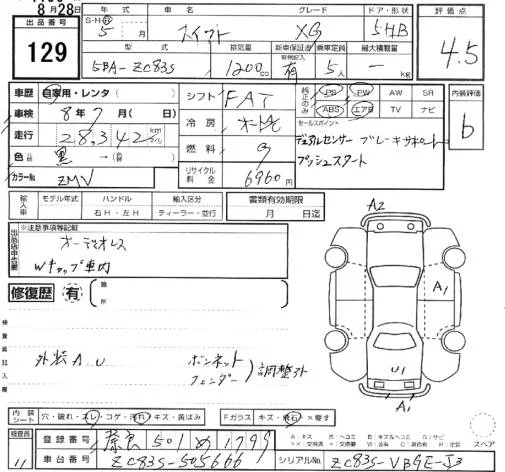 8月28日
出品番号
129
年式 車名 グレード ドア・形状 評価点
S・H・R 5 月 スイフト XG 5HB 4.5
型式 排気量 新車保証書 乗車定員 最大積載量
有無記入
5BA-ZC83S 1200cc 有 5人 ー kg
車歴 自家用・レンタ シフト FAT 純正のみ PS PW AW SR 内装評価
ABS エアB TV ナビ b
車検 8年 7月( 日) 冷房 オートAC セールスポイント
走行 28,342 km マイル デュアルセンサーブレーキサポート
プッシュスタート
色 黒 → 燃料 ガ
カラーNo. ZMV リサイクル料金 6960円
輸入車 モデル年式 ハンドル 輸入区分 書類有効期限
右H・左H ディーラー・並行 月 日迄
出品店申告欄 ※注意事項等記載
オーディオレス
Wキャップ車内
修復歴 有 箇所
A2
A1
U1
A1
検査員記入欄
外装A、U ボンネット
フェンダー 調整外
内装シート 穴・破れ・スレ・コゲ・汚れ・キズ・黄ばみ Fガラス キズ・飛石・×要す
A:キズ U:ヘコミ B:キズ&ヘコミ S:サビ スペア
検査員 登録番号 奈良 501 め 1799
11 車台番号 ZC83S-505666 シリアルNo. ZC83S-VBGE-S3